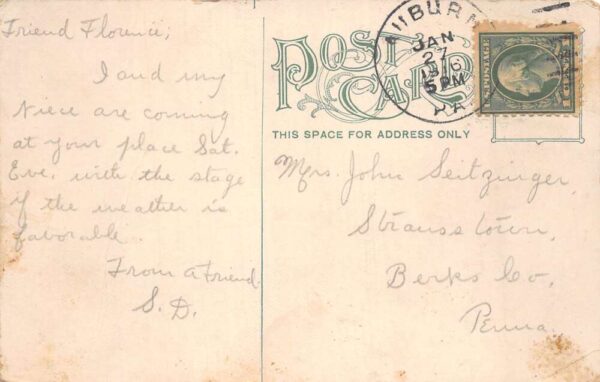 Friend Florence;
I and my
Niece are coming
at your place Sat.
Eve. with the stage
if the weather is
favorable
From a Friend
S. D.
POST
CARD
THIS SPACE FOR ADDRESS ONLY
JAN
27
5 PM
PA
POSTAGE
Mrs. John Seitzinger,
Strausstown,
Berks Co,
Penna.